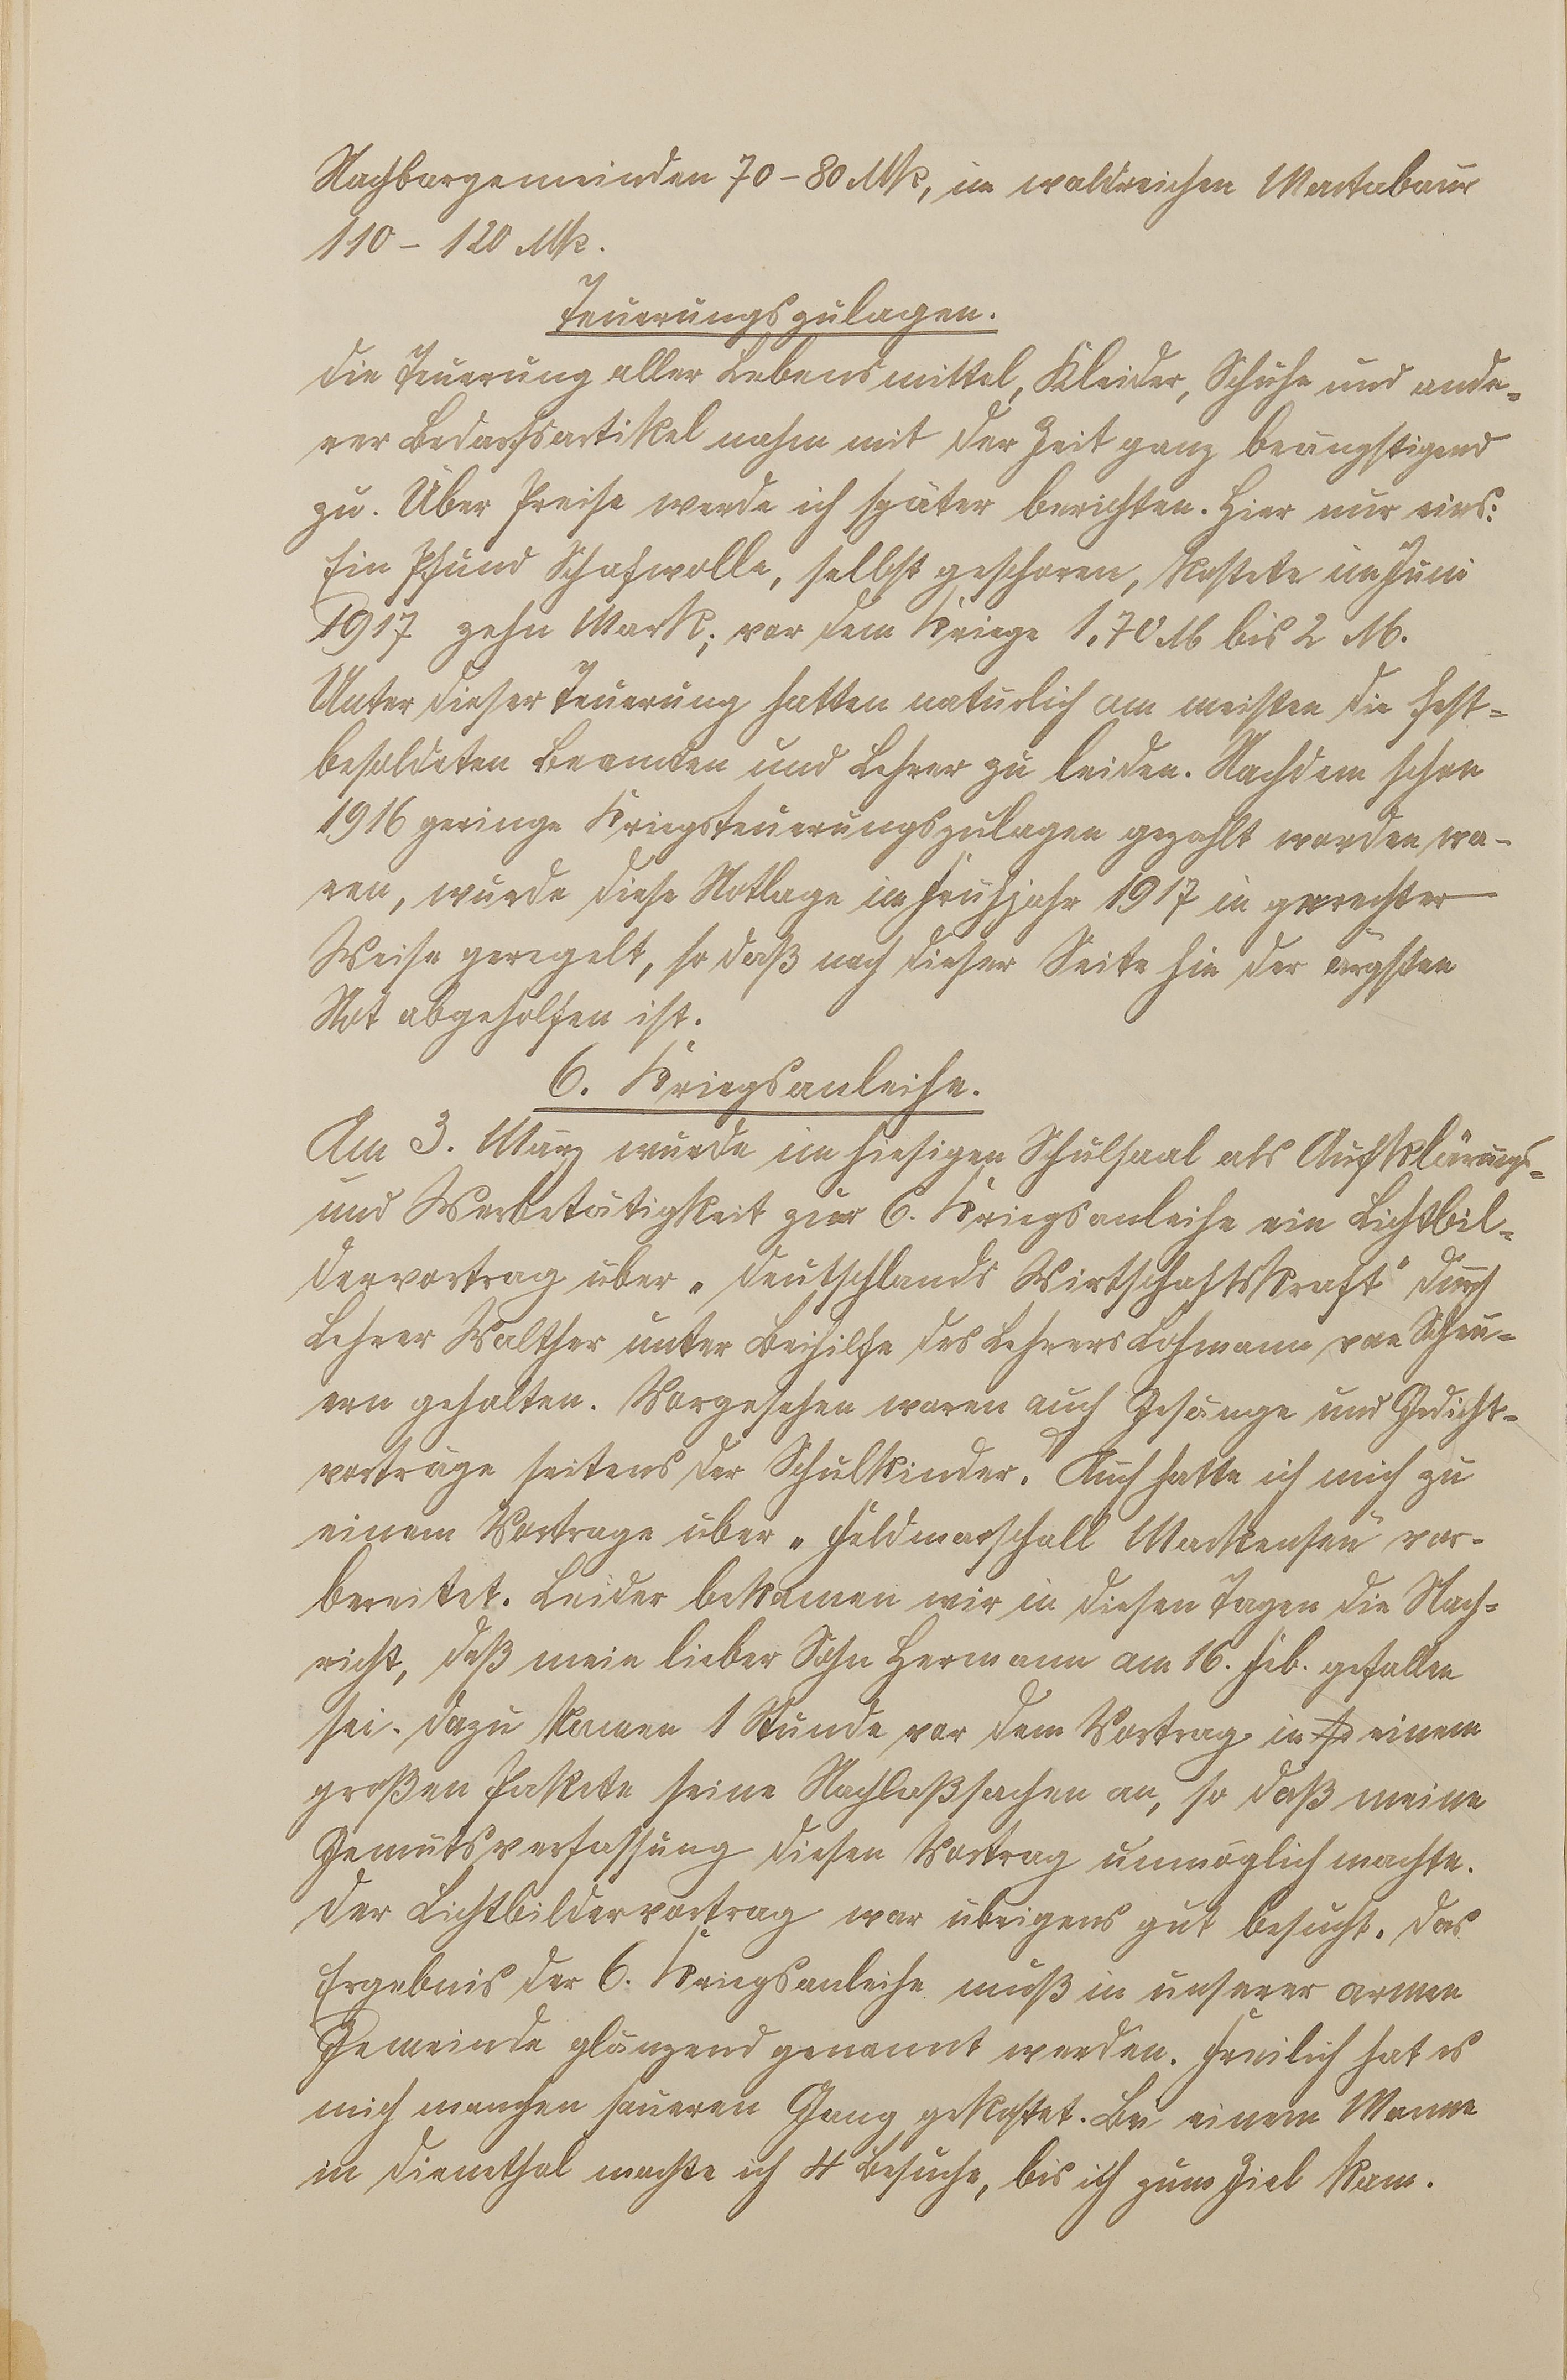 Nachbargemeinden 70–80 Mk, im waldreichen Montabaur
110 – 120 Mk.
Teuerungszulagen.
Die Teuerung aller Lebensmittel, Kleider, Schuhe und ande-
rer Bedarfsartikel nahm mit der Zeit ganz beängstigend
zu. Über Preise werde ich später berichten. Hier nur eins:
Ein Pfund Schafwolle, selbst geschoren, kostete im Juni
1917 zehn Mark; vor dem Kriege 1.70 M bis 2 M.
Unter dieser Teuerung hatten natürlich am meisten die fest-
besoldeten Beamten und Lehrer zu leiden. Nachdem schon
1916 geringe Kriegsteuerungszulagen gezahlt worden wa-
ren, wurde diese Notlage im Frühjahr 1917 in gerechter
Weise geregelt, so daß nach dieser Seite hin der ärgsten
Not abgeholfen ist.
6. Kriegsanleihe.
Am 3. März wurde im hiesigen Schulsaal als Aufklärungs-
und Werbetätigkeit zur 6. Kriegsanleihe ein Lichtbil-
dervortrag über „Deutschlands Wirtschaftskraft" durch
Lehrer Walther unter Beihilfe des Lehrers Lohmann von Scheu-
ern gehalten. Vorgesehen waren auch Gesänge und Gedicht-
vorträge seitens der Schulkinder. Auch hatte ich mich zu
einem Vortrage über „Feldmarschall Mackensen" vor-
bereitet. Leider bekamen wir in diesen Tagen die Nach-
richt, daß mein lieber Sohn Hermann am 16. Feb. gefallen
sei. Dazu kamen 1 Stunde vor dem Vortrag in einem
großen Pakete seine Nachlaßsachen an, so daß meine
Gemütsverfassung diesen Vortrag unmöglich machte.
Der Lichtbildervortrag war übrigens gut besucht. Das
Ergebnis der 6. Kriegsanleihe muß in unserer armen
Gemeinde glänzend genannt werden. Freilich hat es
mich manchen saueren Gang gekostet. Bei einem Manne
in Dienethal machte ich 4 Besuche, bis ich zum Ziel kam.